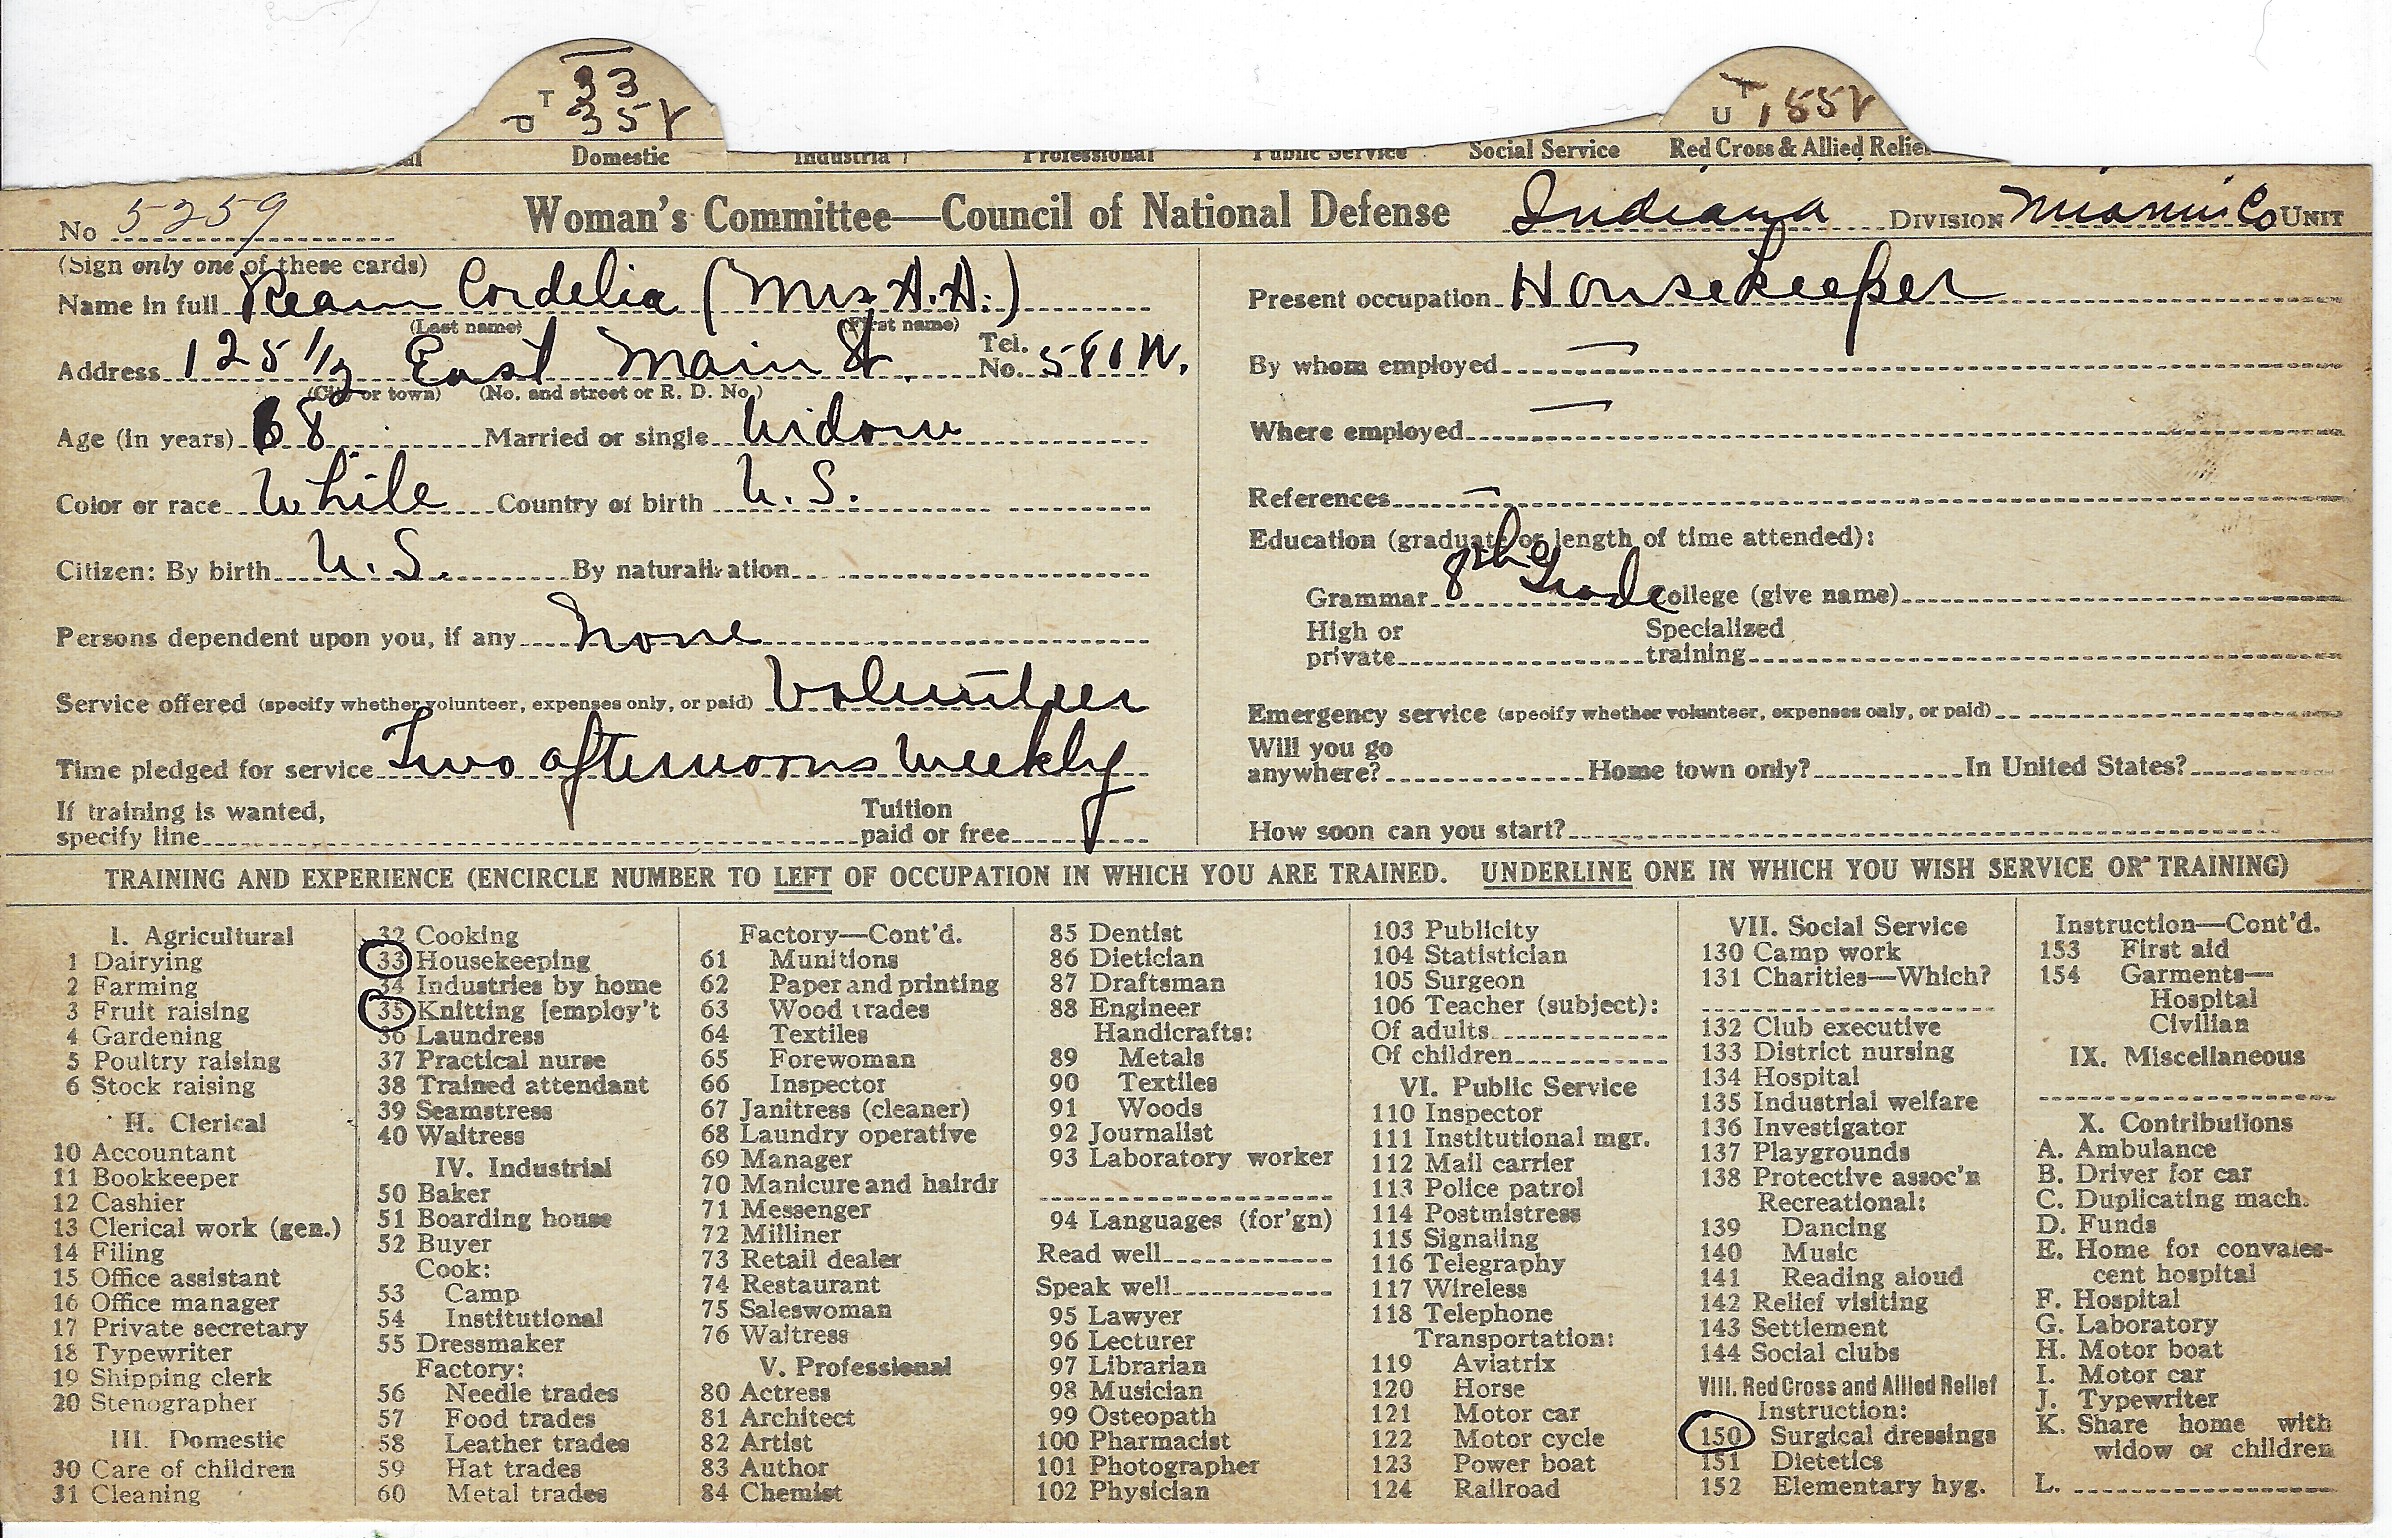 T 33
P 35 V
U T 155 V
Domestic Industrial Professional Public Service Social Service Red Cross & Allied Relief
No 5259 Woman's Committee—Council of National Defense Indiana DIVISION Miami Co UNIT
(Sign only one of these cards)
Name in full Ream Cordelia (Mrs A.A.)
(Last name) (First name)
Address 125 1/2 East Main St. Tel. No. 581 W.
(City or town) (No. and street or R. D. No.)
Age (in years) 68 Married or single Widow
Color or race White Country of birth U.S.
Citizen: By birth U.S. By naturalization
Persons dependent upon you, if any None
Service offered (specify whether volunteer, expenses only, or paid) Volunteer
Time pledged for service Two afternoons weekly
If training is wanted, specify line Tuition paid or free
Present occupation Housekeeper
By whom employed —
Where employed —
References —
Education (graduate or length of time attended):
Grammar 8the Grade College (give name)
High or private Specialized training
Emergency service (specify whether volunteer, expenses only, or paid)
Will you go anywhere? Home town only? In United States?
How soon can you start?
TRAINING AND EXPERIENCE (ENCIRCLE NUMBER TO LEFT OF OCCUPATION IN WHICH YOU ARE TRAINED. UNDERLINE ONE IN WHICH YOU WISH SERVICE OR TRAINING)
I. Agricultural
1 Dairying
2 Farming
3 Fruit raising
4 Gardening
5 Poultry raising
6 Stock raising
II. Clerical
10 Accountant
11 Bookkeeper
12 Cashier
13 Clerical work (gen.)
14 Filing
15 Office assistant
16 Office manager
17 Private secretary
18 Typewriter
19 Shipping clerk
20 Stenographer
III. Domestic
30 Care of children
31 Cleaning
32 Cooking
33 Housekeeping
34 Industries by home
35 Knitting [employ't
36 Laundress
37 Practical nurse
38 Trained attendant
39 Seamstress
40 Waitress
IV. Industrial
50 Baker
51 Boarding house
52 Buyer
Cook:
53 Camp
54 Institutional
55 Dressmaker
Factory:
56 Needle trades
57 Food trades
58 Leather trades
59 Hat trades
60 Metal trades
Factory—Cont'd.
61 Munitions
62 Paper and printing
63 Wood trades
64 Textiles
65 Forewoman
66 Inspector
67 Janitress (cleaner)
68 Laundry operative
69 Manager
70 Manicure and hairdr
71 Messenger
72 Milliner
73 Retail dealer
74 Restaurant
75 Saleswoman
76 Waitress
V. Professional
80 Actress
81 Architect
82 Artist
83 Author
84 Chemist
85 Dentist
86 Dietician
87 Draftsman
88 Engineer
Handicrafts:
89 Metals
90 Textiles
91 Woods
92 Journalist
93 Laboratory worker
94 Languages (for'gn)
Read well
Speak well
95 Lawyer
96 Lecturer
97 Librarian
98 Musician
99 Osteopath
100 Pharmacist
101 Photographer
102 Physician
103 Publicity
104 Statistician
105 Surgeon
106 Teacher (subject):
Of adults
Of children
VI. Public Service
110 Inspector
111 Institutional mgr.
112 Mail carrier
113 Police patrol
114 Postmistress
115 Signaling
116 Telegraphy
117 Wireless
118 Telephone
Transportation:
119 Aviatrix
120 Horse
121 Motor car
122 Motor cycle
123 Power boat
124 Railroad
VII. Social Service
130 Camp work
131 Charities—Which?
132 Club executive
133 District nursing
134 Hospital
135 Industrial welfare
136 Investigator
137 Playgrounds
138 Protective assoc'n
Recreational:
139 Dancing
140 Music
141 Reading aloud
142 Relief visiting
143 Settlement
144 Social clubs
VIII. Red Cross and Allied Relief
Instruction:
150 Surgical dressings
151 Dietetics
152 Elementary hyg.
Instruction—Cont'd.
153 First aid
154 Garments—
Hospital
Civilian
IX. Miscellaneous
X. Contributions
A. Ambulance
B. Driver for car
C. Duplicating mach.
D. Funds
E. Home for convales-
cent hospital
F. Hospital
G. Laboratory
H. Motor boat
I. Motor car
J. Typewriter
K. Share home with
widow or children
L.